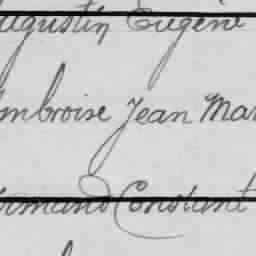 Augustin Eugène
Ambroise Jean Mar
Armand Constant